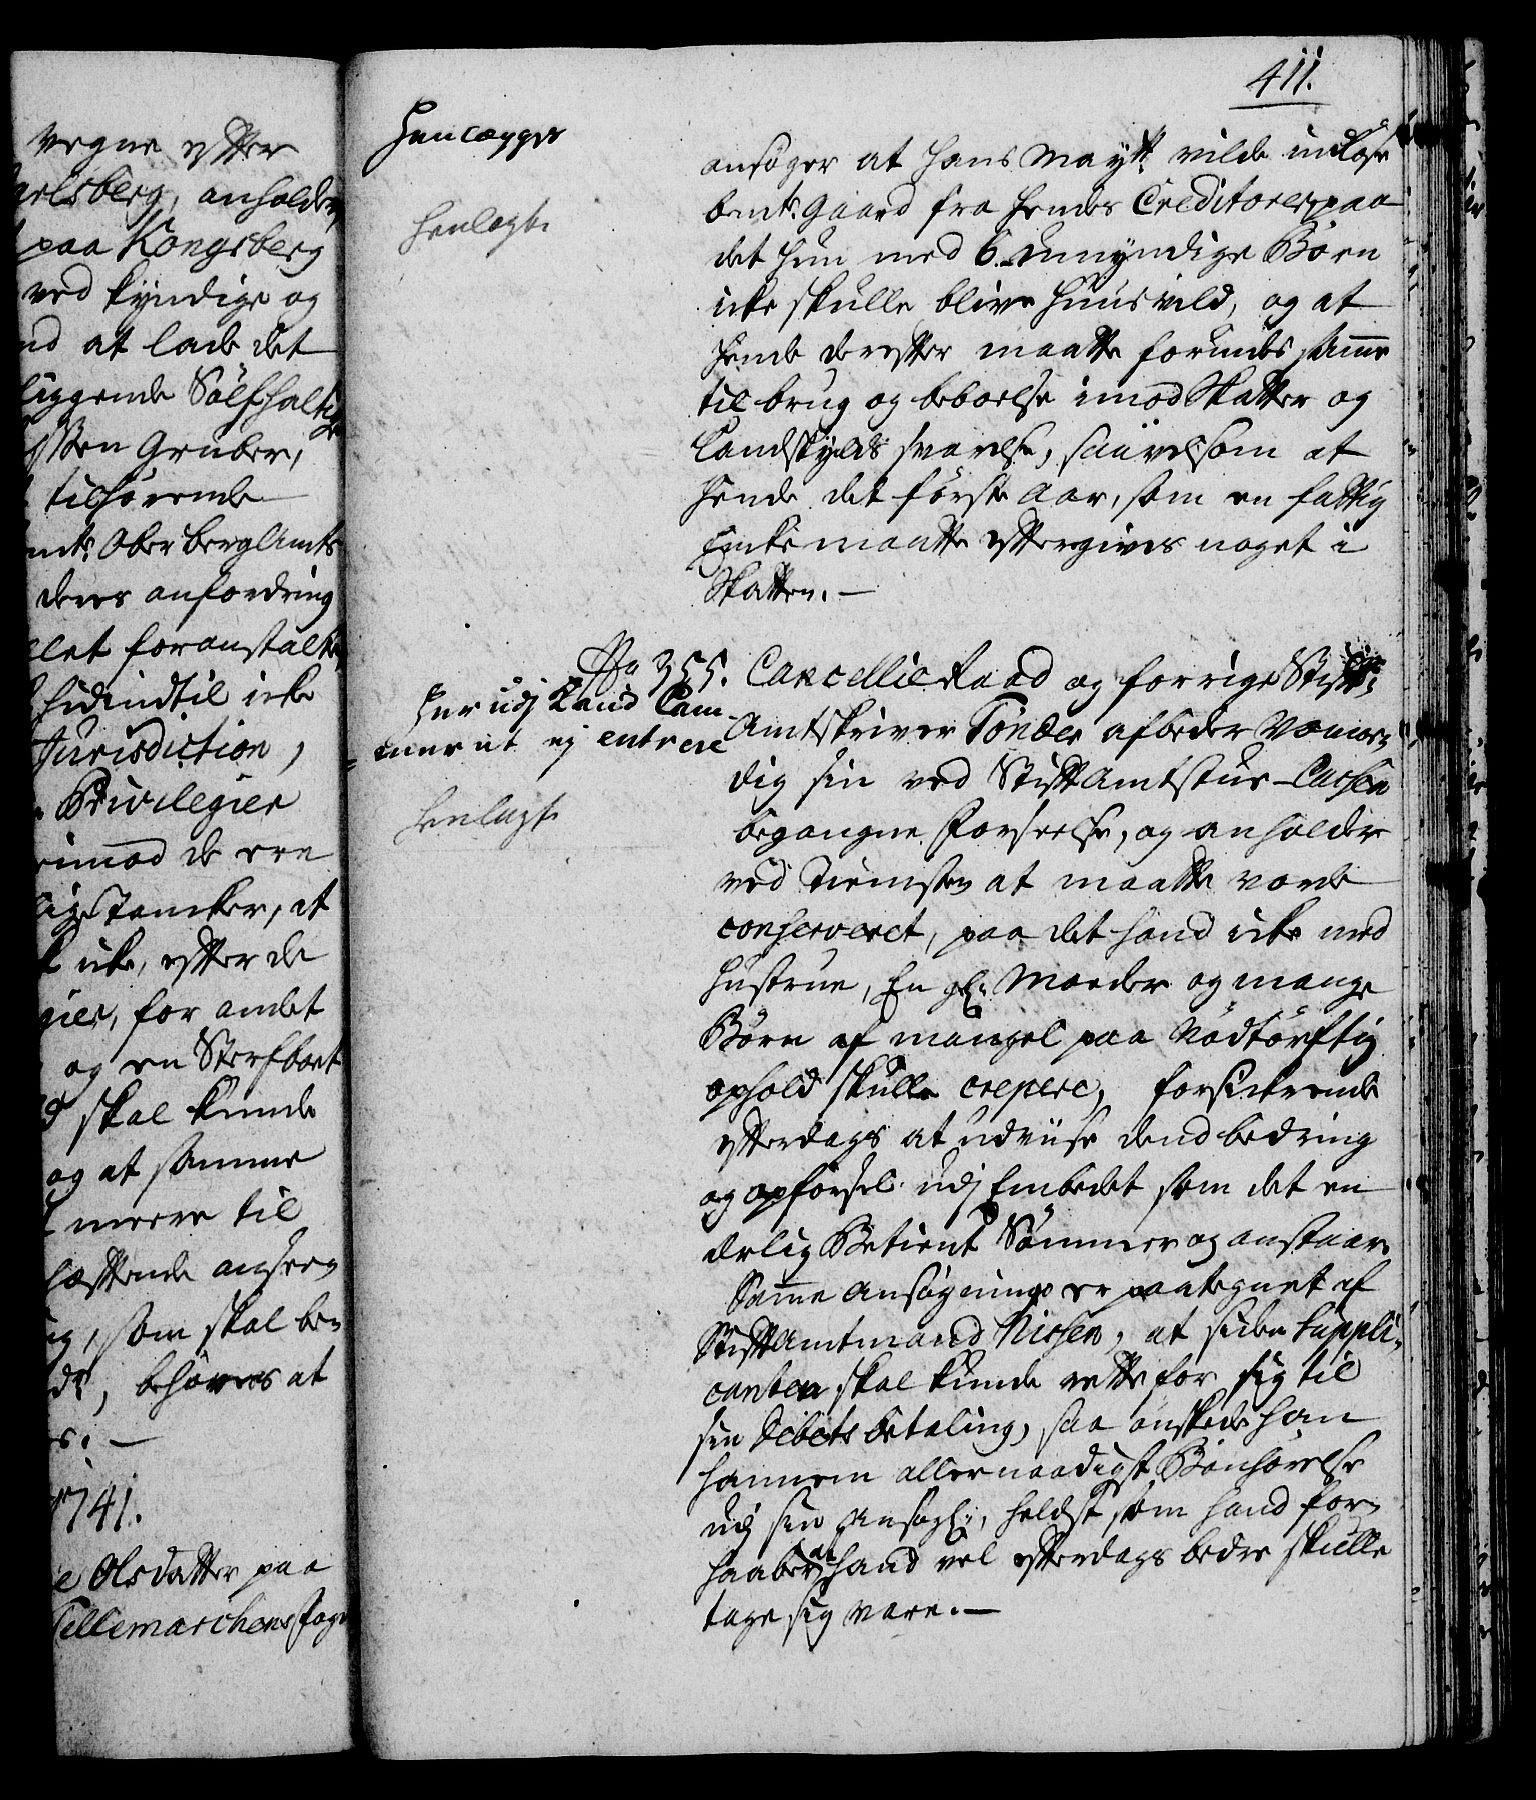 vegne efter
arlsberg, anholder,
paa Kongsberg
ved kyndige og
nd at lade det
liggende Sölfhaltige
ssen Gruber,
tilhørende
mts Ober Berg Amts
deres anfordring
let foranstalte,
hidindtil icke
Jurisdiction,
Privilegier
imod de ere
lige Tancker, at
k icke, efter de
gier, for andet
og en Sterfboet
d skal kunde
og at samme
meere til
hæftende ansees
ng, som skal be=
d, behøves at
s. —
1741.
e Olsdatter paa
Tellemarchens fog
411.
Henlægges
Henlagt.
ansøger at Hans Maytt vilde indløse
bemte Gaard fra hendes Creditorer, paa
det hun med 6 umyndige Børn
icke skulle blive huusvild, og at
hende derefter maatte forundes samme
til brug og beboelse imod Skatter og
Landskylds svarelse, saavelsom at
hende det første Aar, som en fattig
Encke maatte eftergives noget i
Skatten. —
No 355.
Herudj Kand Cam-
meret ej entrere
Henlagt.
Cancellie Raad og forrige Stift-
Amtskriver Tönder afbeder Voemo-
dig sin ved StiftAmtstue-Cassen
begangne Forseelse, og anholder
ved Tienesten at maatte vorde
conserveret, paa det hand icke med
Hustrue, En gl. Moeder og mange
Børn af mangel paa Nödtörftig
ophold skulle crepere, forsickrende
efterdags at udviise dend bedring
og opførsel udj Embedet som det en
ærlig Betient Sömmer og anstaar.
Samme ansøgning er paategnet af
StiftAmtmand Nissen, at siden Suppli-
canten skal kunde rette for sig til
sin Debets betaling, saa ønskede han
hannem allernaadigst Bönhörelse
udj sin Ansøgn:, heldst som hand for-
haaber at hand vel efterdags bedre skulle
tage sig vare. —